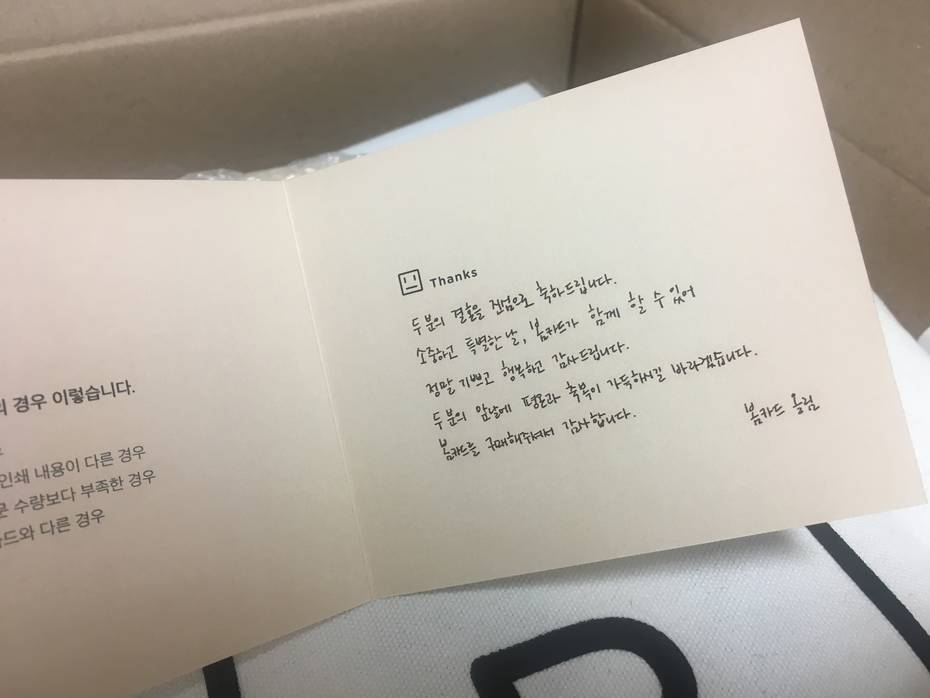 경우 이렇습니다.
인쇄 내용이 다른 경우
수량보다 부족한 경우
다른 경우
Thanks
두분의 결혼을 진심으로 축하드립니다.
소중하고 특별한 날, 봄카드가 함께 할 수 있어
정말 기쁘고 행복하고 감사드립니다.
두분의 앞날에 평온과 축복이 가득하시길 바라겠습니다.
봄카드를 구매해주셔서 감사합니다.
봄카드 올림